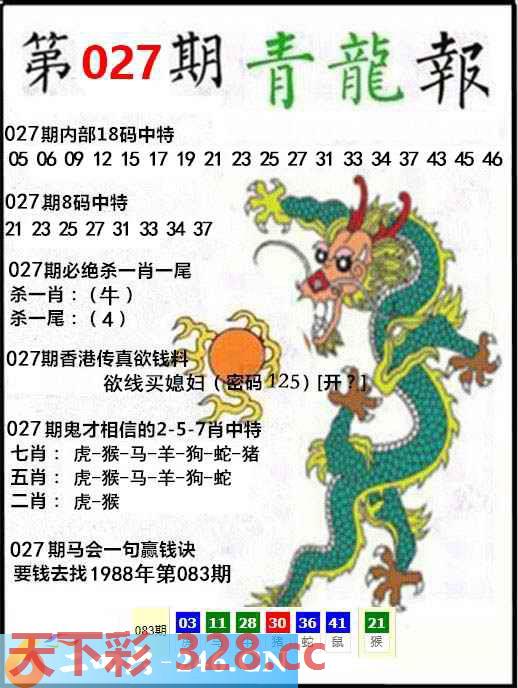 第027期青龍報
027期内部18码中特
05 06 09 12 15 17 19 21 23 25 27 31 33 34 37 43 45 46
027期8码中特
21 23 25 27 31 33 34 37
027期必绝杀一肖一尾
杀一肖：（牛）
杀一尾：（4）
027期香港传真欲钱料
欲线买媳妇（密码125）[开？]
027期鬼才相信的2-5-7肖中特
七肖：虎-猴-马-羊-狗-蛇-猪
五肖：虎-猴-马-羊-狗-蛇
二肖：虎-猴
027期马会一句赢钱诀
要钱去找1988年第083期
083期 03 11 28 30 36 41 21
猪 蛇 鼠 猴
天下彩-328.cc